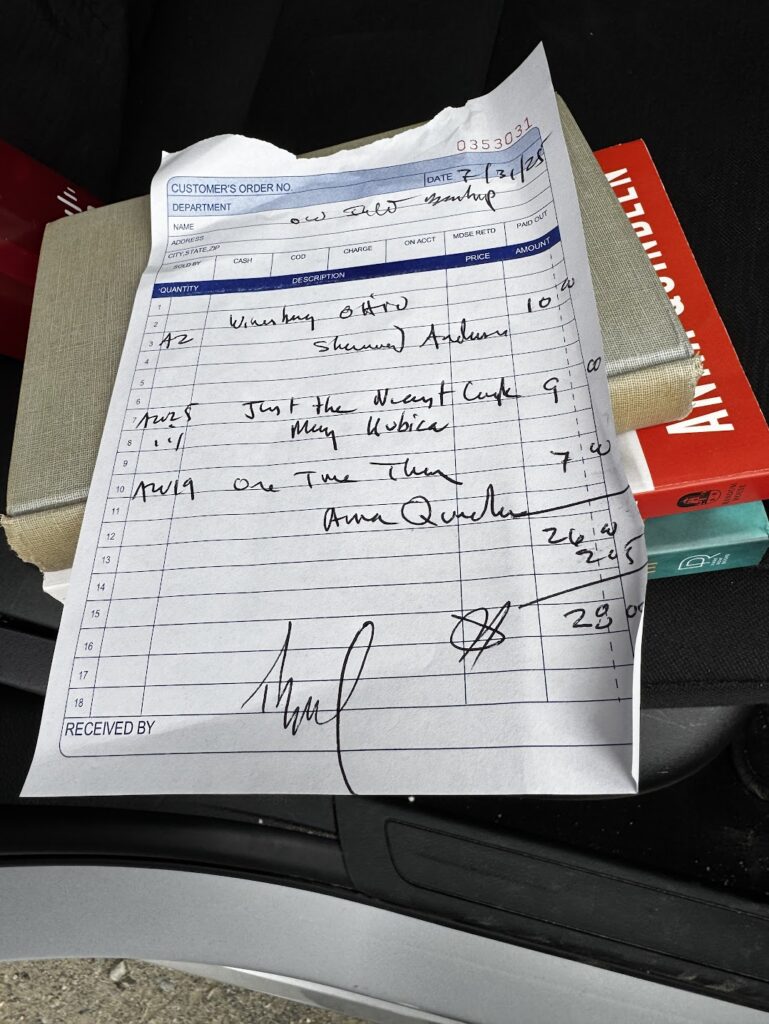 0353031
CUSTOMER'S ORDER NO.
DATE 7/31/25
DEPARTMENT
NAME
ADDRESS
CITY, STATE, ZIP
SOLD BY CASH COD CHARGE ON ACCT MDSE RETD PAID OUT
QUANTITY DESCRIPTION PRICE AMOUNT
1
2 Winesburg OHIO 10 00
3 A2 Sherwood Anderson
4
5
6 Just the Nicest Couple 9 00
7 AW25
8 Mary Kubica
9
10 AW19 One True Thing 7 00
11 Anna Quindlen
12 26 00
13 2 05
14
15 28 05
16
17
18
RECEIVED BY
ANNA QUINDLEN
RANDOM HOUSE